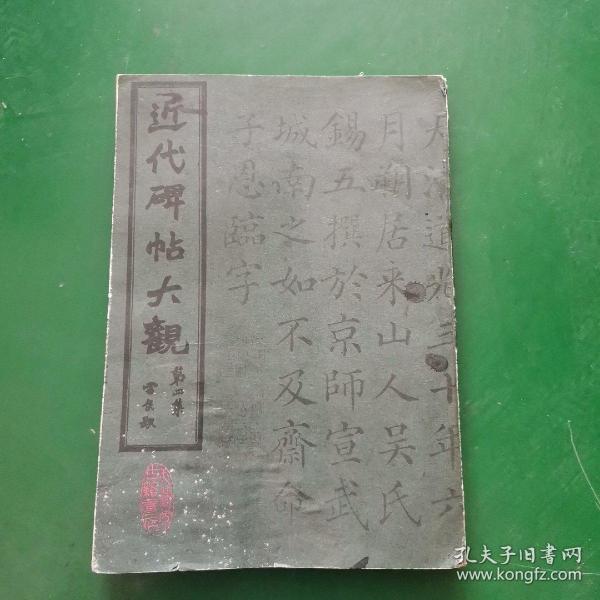 近代碑帖大觀
第四集
大清道光三十年六
月朔居来山人吴氏
錫五撰於京師宣武
城南之如不及齋命
子恩臨字
孔夫子旧書网
www.kongfz.com